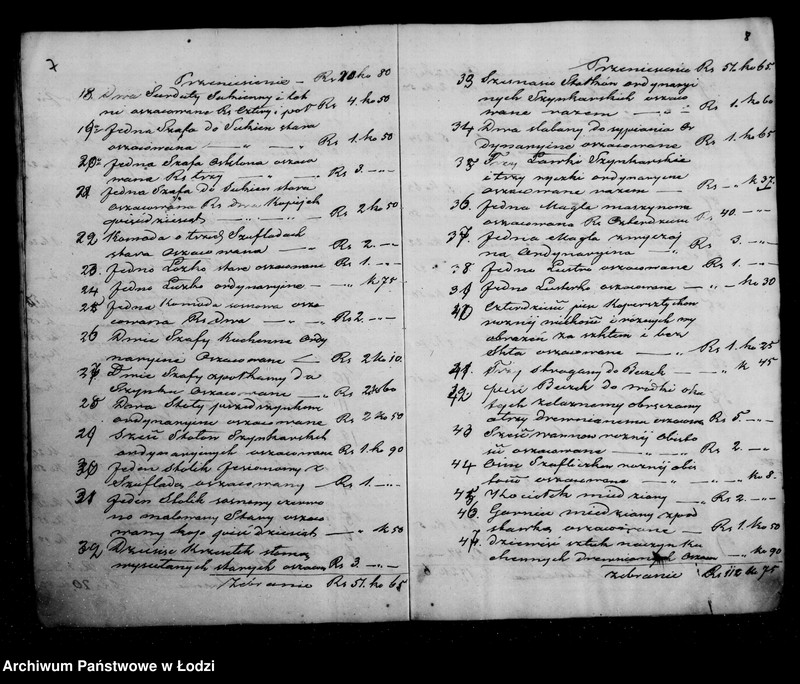 7
Przeniesienie — Rs 20 ko 80
18. Dwa Surduty Sukienny i let
ni oszacowane Rs Cztery i poł Rs 4. ko 50
19. Jedna Szafa do Sukien stara
oszacowana — „ — „ Rs 1. ko 50
20. Jedna Szafa Oszklona oszaco
wana Rs trzy — „ — „ Rs 3. — „ —
21. Jedna Szafa do Sukien stara
oszacowana Rs dwa Kopiejek
pięćdziesiąt — „ Rs 2 ko 50
22 Komoda o trzech Szufladach
stara oszacowana — „ Rs 2. — „ —
23. Jedno Łóżko stare oszacowane Rs 1. — „ —
24 Jedno Łóżko ordynaryine — „ — k 75
25 Jedna Komoda osza
cowana Rs dwa — „ — „ Rs 2. — „ —
26 Dwie Szafy Kuchenne Ordy
naryine Oszacowane — Rs 2 ko 10.
27 Dwie Szafy do
Szynku Oszacowane — „ Rs 2 ko 60
28 Dwa Stoły
ordynaryine oszacowane Rs 2 ko 50
29 Sześć Stołów Szynkarskich
ordynaryinych oszacowane Rs 1. ko 90
30 Jeden Stolik Jesionowy z
Szufladą oszacowany — Rs 1. — „ —
31 Jeden Stolik sosnowy czerwo
no malowany Stary oszaco
wany kop. pięćdziesiąt — „ — k 50
32 Dziesięć Krzesełek słomą
wyscielanych starych oszacow Rs 3. — „ —
Zebranie Rs 51. ko 65
8
Przeniesienie Rs 51. ko 65
33 Statków ordynaryi
nych Szynkarskich oszaco
wane razem — „ — „ Rs 1. ko 60
34 Dwa słabany do sypiania Or
dynaryine oszacowane Rs 1. ko 65
35 Trzy Ławki Szynkarskie
i trzy ordynaryine
oszacowane razem — Rs — „ k 37.
36. Jedna Magla maszynowa
oszacowana Rs Czterdzieści Rs 40. — „ —
37. Jedna Magla zwyczaj
na Ordynaryina — „ Rs 3. — „ —
38. Jedno Lustro oszacowane Rs 1. — „ —
39 Jedno Lusterko oszacowane — „ — ko 30
40 Czterdzieści pięć Kopersztychów
różnej wielkości i różnych wy
obrażeń za szkłem i bez
Szkła oszacowane — „ Rs 1. ko 25
41. Trzy Stragany do Beczek — „ k 45
42 pięć Beczek do wódki oko
tych żelaznemi obręczami
a trzy drewnianemi oszacow Rs 5. — „ —
43 Sześć wannów różnej Obięto
ści oszacowane — „ Rs 2. — „
44 Ośm Szaflików różnej obię
tości oszacowane „ „ „ ko 8.
45 miedziany — „ Rs 2. — „ —
46. Garniec miedziany
oszacowane — Rs 1. ko 50
47. dziewięć sztuk naczyń Ku
chennych drewnianych Oszac — „ ko 90
Zebranie Rs 112 ko 75
Archiwum Państwowe w Łodzi